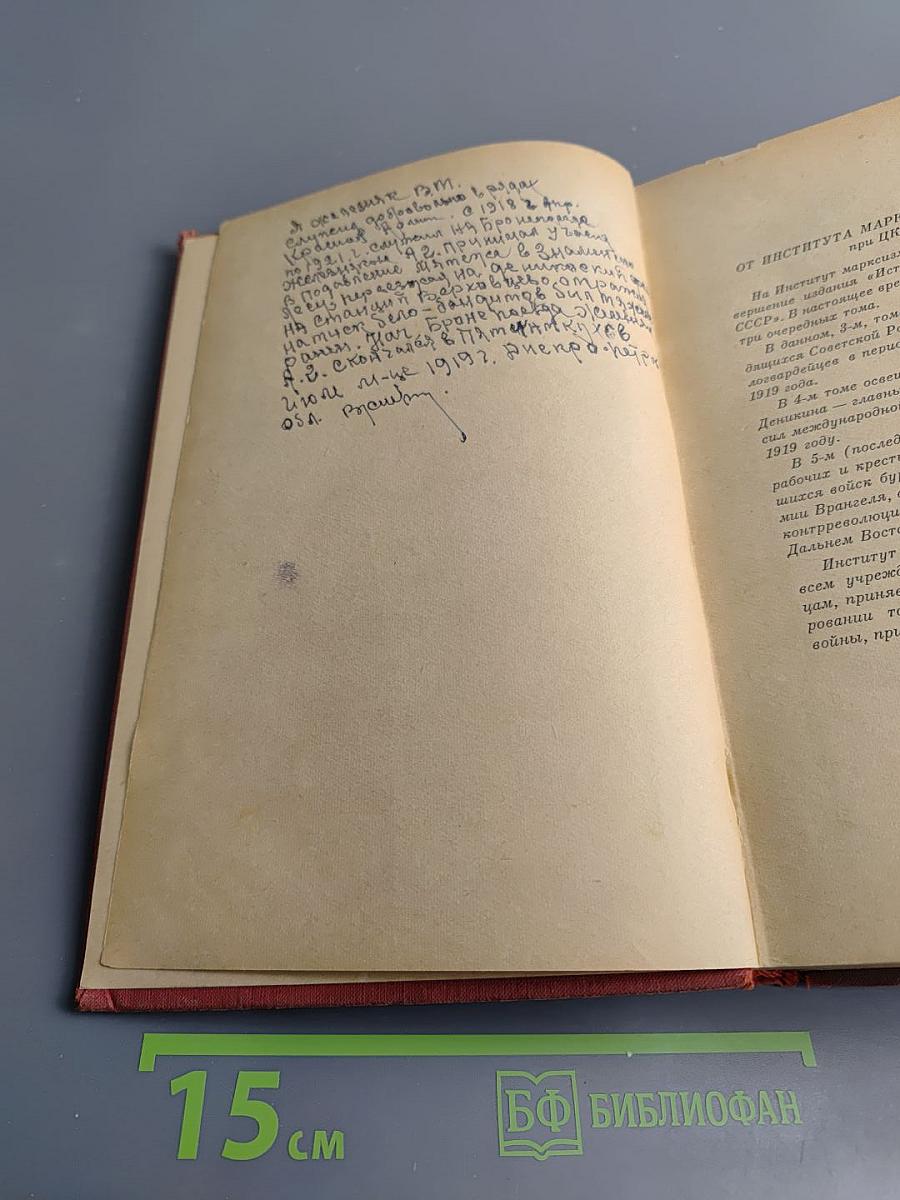 Я Железняк В.М.
служил добровольно в рядах
Красной Армии. С 1918 г. Апр.
по 1921 г. служил на Бронепоезде
Железняков А.Г. Принимал участие
в подавление мятежа в Знаменке
переезжал на деникский
на станции Верховцево отражая
натиск бело-бандитов был тяжело
ранен. Нач. Бронепоезда Железняков
А.Г. Скончался в Пятихатках в
Июле м-це 1919 г. Днепро-петр
обл.
ОТ ИНСТИТУТА МАРК
при ЦК
На Институт марксиз
вершение издания «Ист
СССР». В настоящее вре
три очередных тома.
В данном, 3-м, том
дящихся Советской Ро
логвардейцев в перио
1919 года.
В 4-м томе освещ
Деникина — главны
сил международной
1919 году.
В 5-м (послед
рабочих и кресть
шихся войск бур
мии Врангеля,
контрреволюци
Дальнем Восто
Институт
всем учрежд
цам, приняв
ровании то
войны, при
15 см
БФ БИБЛИОФАН